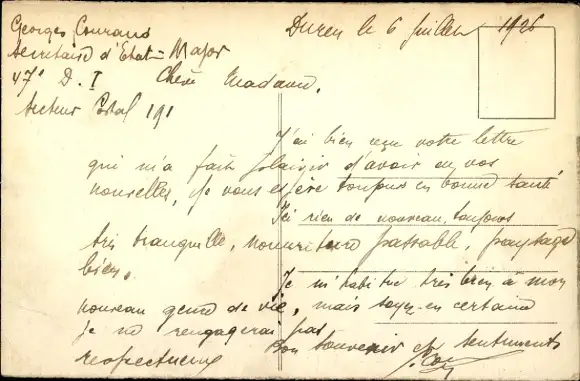 Georges Courans
Secrétaire d'Etat-Major
47e D. I
Secteur Postal 191
Duren le 6 Juillet 1926
Chère Madame,
J'ai bien reçu votre lettre
qui m'a fait plaisir d'avoir eu vos
nouvelles, je vous espère toujours en bonne santé
Ici rien de nouveau, toujours
très tranquille, nourriture passable, paysage
bien.
Je m'habitue très bien à mon
nouveau genre de vie, mais soyez en certaine
je ne rengagerai pas
Bon souvenir et sentiments
respectueux